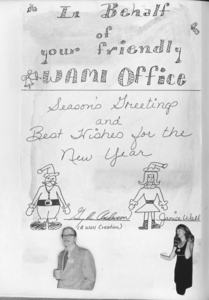 In Behalf
of
your friendly
WAMI Office
Season's Greetings
and
Best Wishes for the
New Year
(A WAMI Creation)
Janice Wall